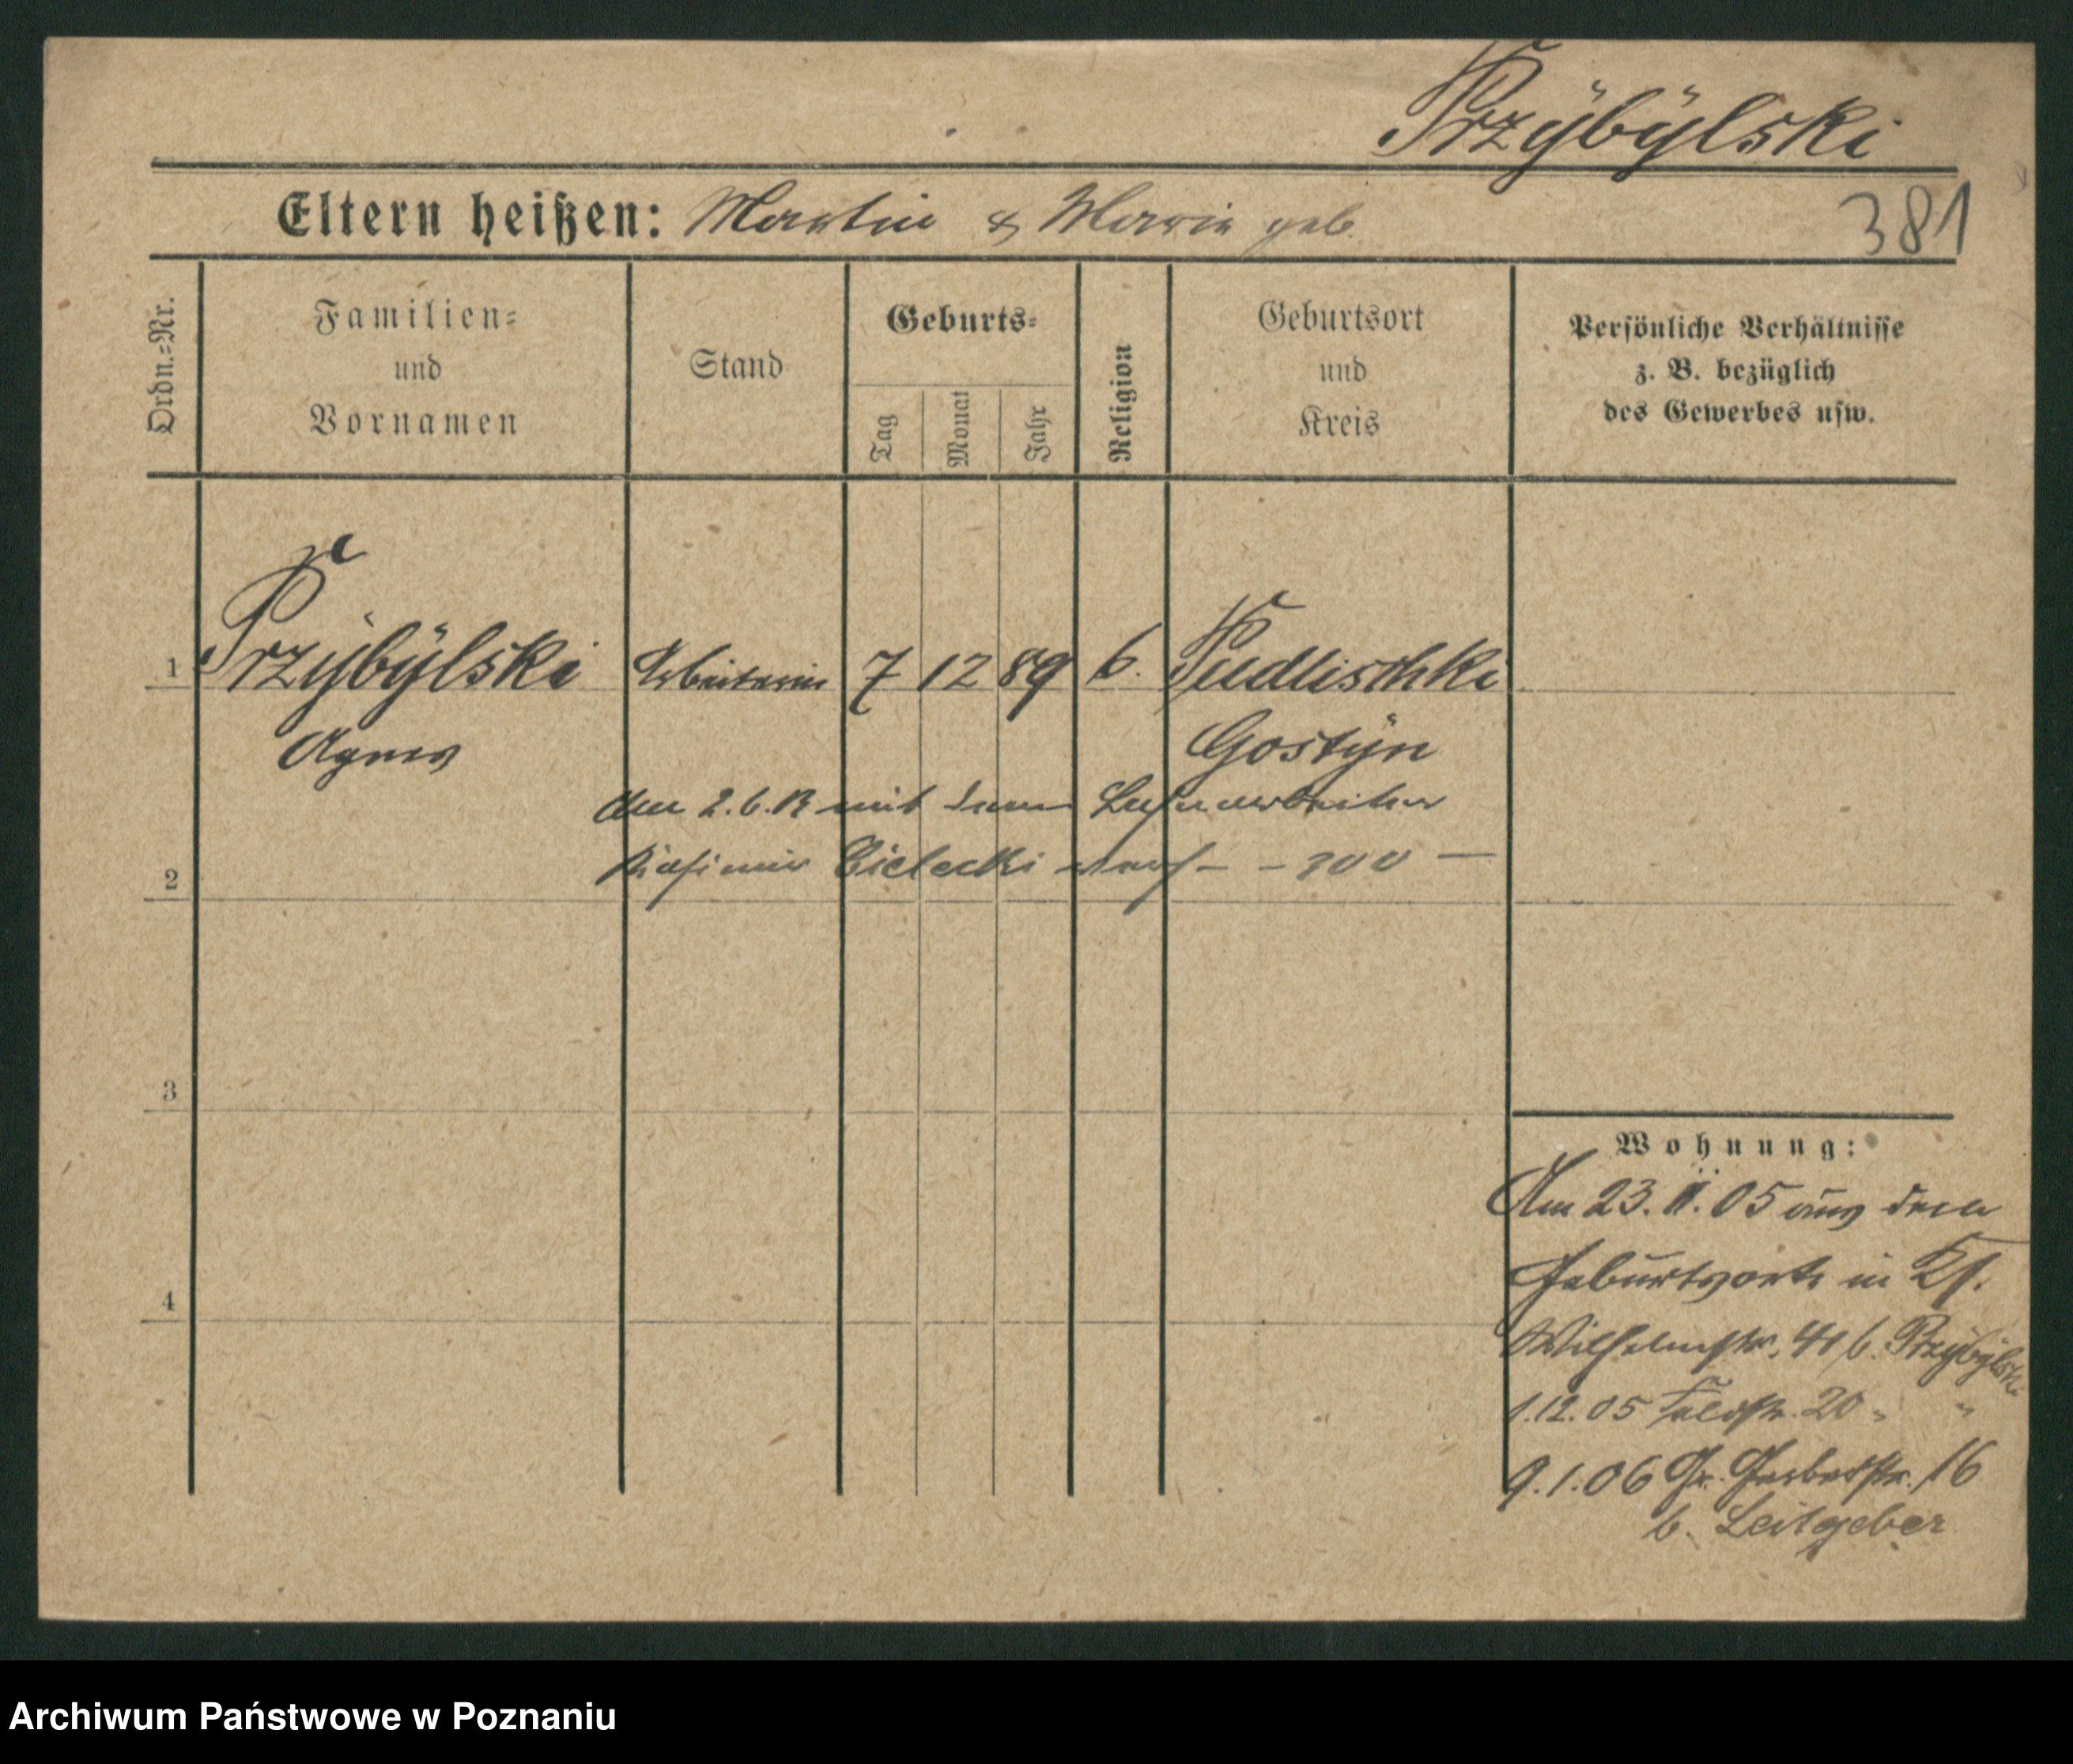 Przÿbÿlski
381
Eltern heißen: Martin & Marie geb.
Ordn.=Nr.
Familien=
und
Vornamen
Stand
Geburts=
Tag
Monat
Jahr
Religion
Geburtsort
und
Kreis
Persönliche Verhältnisse
z. B. bezüglich
des Gewerbes usw.
1 Przÿbÿlski Arbeiterin 7 12 89 Pudlischki
Agnes Gostÿn
2. 6. mit dem
2 Cielecki
3
4
Wohnung:
Am 23. 05 aus dem
Geburtsorte in
Wilhelmstr. 41 b. Przÿbÿlski
1.12.05 Feldstr. 20 " "
9.1.06 Gr. Gerberstr. 16
b. Leitgeber
Archiwum Państwowe w Poznaniu